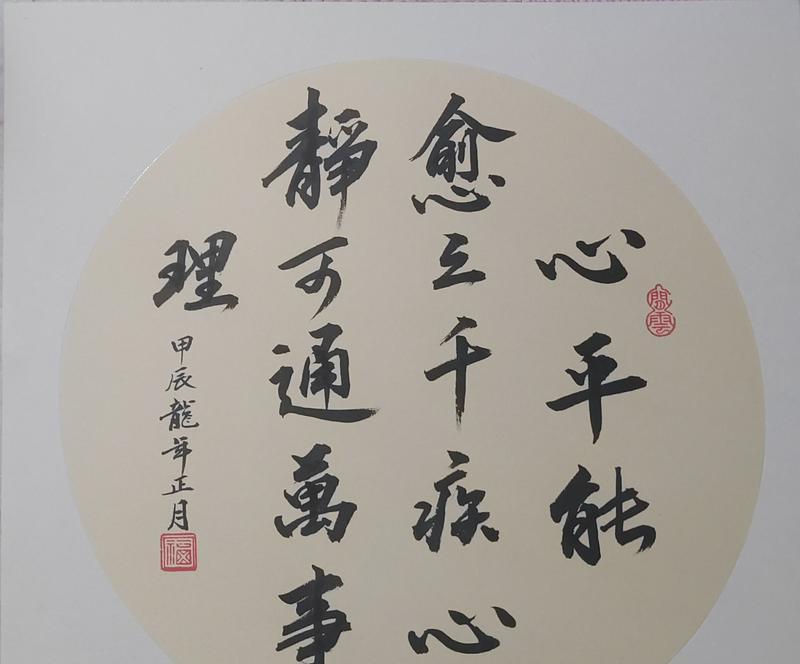 心平能
愈三千疾心
靜可通萬事
理
甲辰龍年正月
閑雲
福